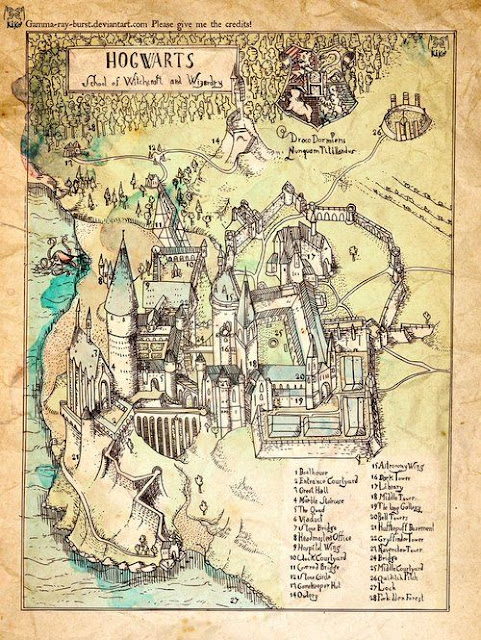 Gamma-ray-burst.deviantart.com Please give me the credits!
HOGWARTS
School of Witchcraft and Wizardry
Draco Dormiens
Nunquam Titillandus
1 Boathouse
2 Entrance Courtyard
3 Great Hall
4 Marble Staircase
5 The Quad
6 Viaduct
7 Stone Bridge
8 Headmasters Office
9 Hospital Wing
10 Clock Courtyard
11 Covered Bridge
12 Stone Circle
13 Gamekeeper Hut
14 Owlery
15 Astronomy Wing
16 Dark Tower
17 Library
18 Middle Tower
19 The long Gallery
20 Bell Towers
21 Hufflepuff Basement
22 Gryffindor Tower
23 Ravenclaw Tower
24 Bridge
25 Middle Courtyard
26 Quidditch Pitch
27 Lock
28 Forbidden Forest